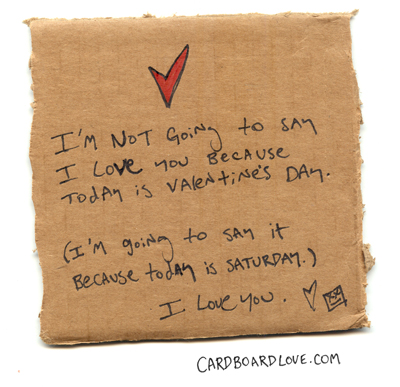 I'm NOT Going to say
I Love you Because
Today is Valentine's Day.
(I'm going to say it
Because today is SATURDAY.)
I Love you.
CARDBOARDLOVE.COM